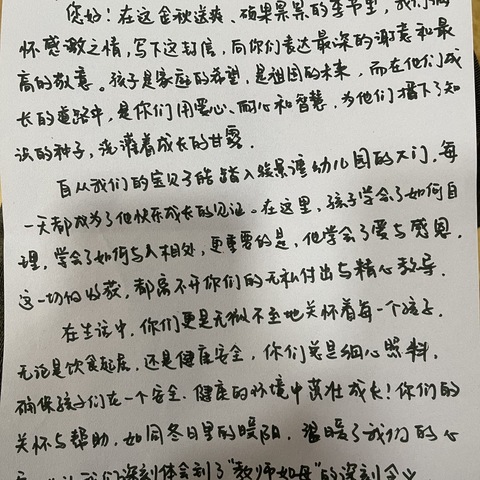 您好！在这金秋送爽、硕果累累的季节里，我们满
怀感激之情，写下这封信，向你们表达最深的谢意和最
高的敬意。孩子是家庭的希望，是祖国的未来，而在他们成
长的道路中，是你们用爱心、耐心和智慧，为他们播下了知
识的种子，浇灌着成长的甘露。
自从我们的宝贝了踏入绿景湾幼儿园的大门，每
一天都成为了他快乐成长的见证。在这里，孩子学会了如何自
理，学会了如何与人相处，更重要的是，他学会了爱与感恩，
这一切的收获，都离不开你们的无私付出与精心教导。
在生活中，你们更是无微不至地关怀着每一个孩子，
无论是饮食起居，还是健康安全，你们总是细心照料，
确保孩子们在一个安全、健康的环境中茁壮成长！你们的
关怀与帮助，如同冬日里的暖阳，温暖了我们的心
我们深刻体会到了“教师如母”的深刻含义